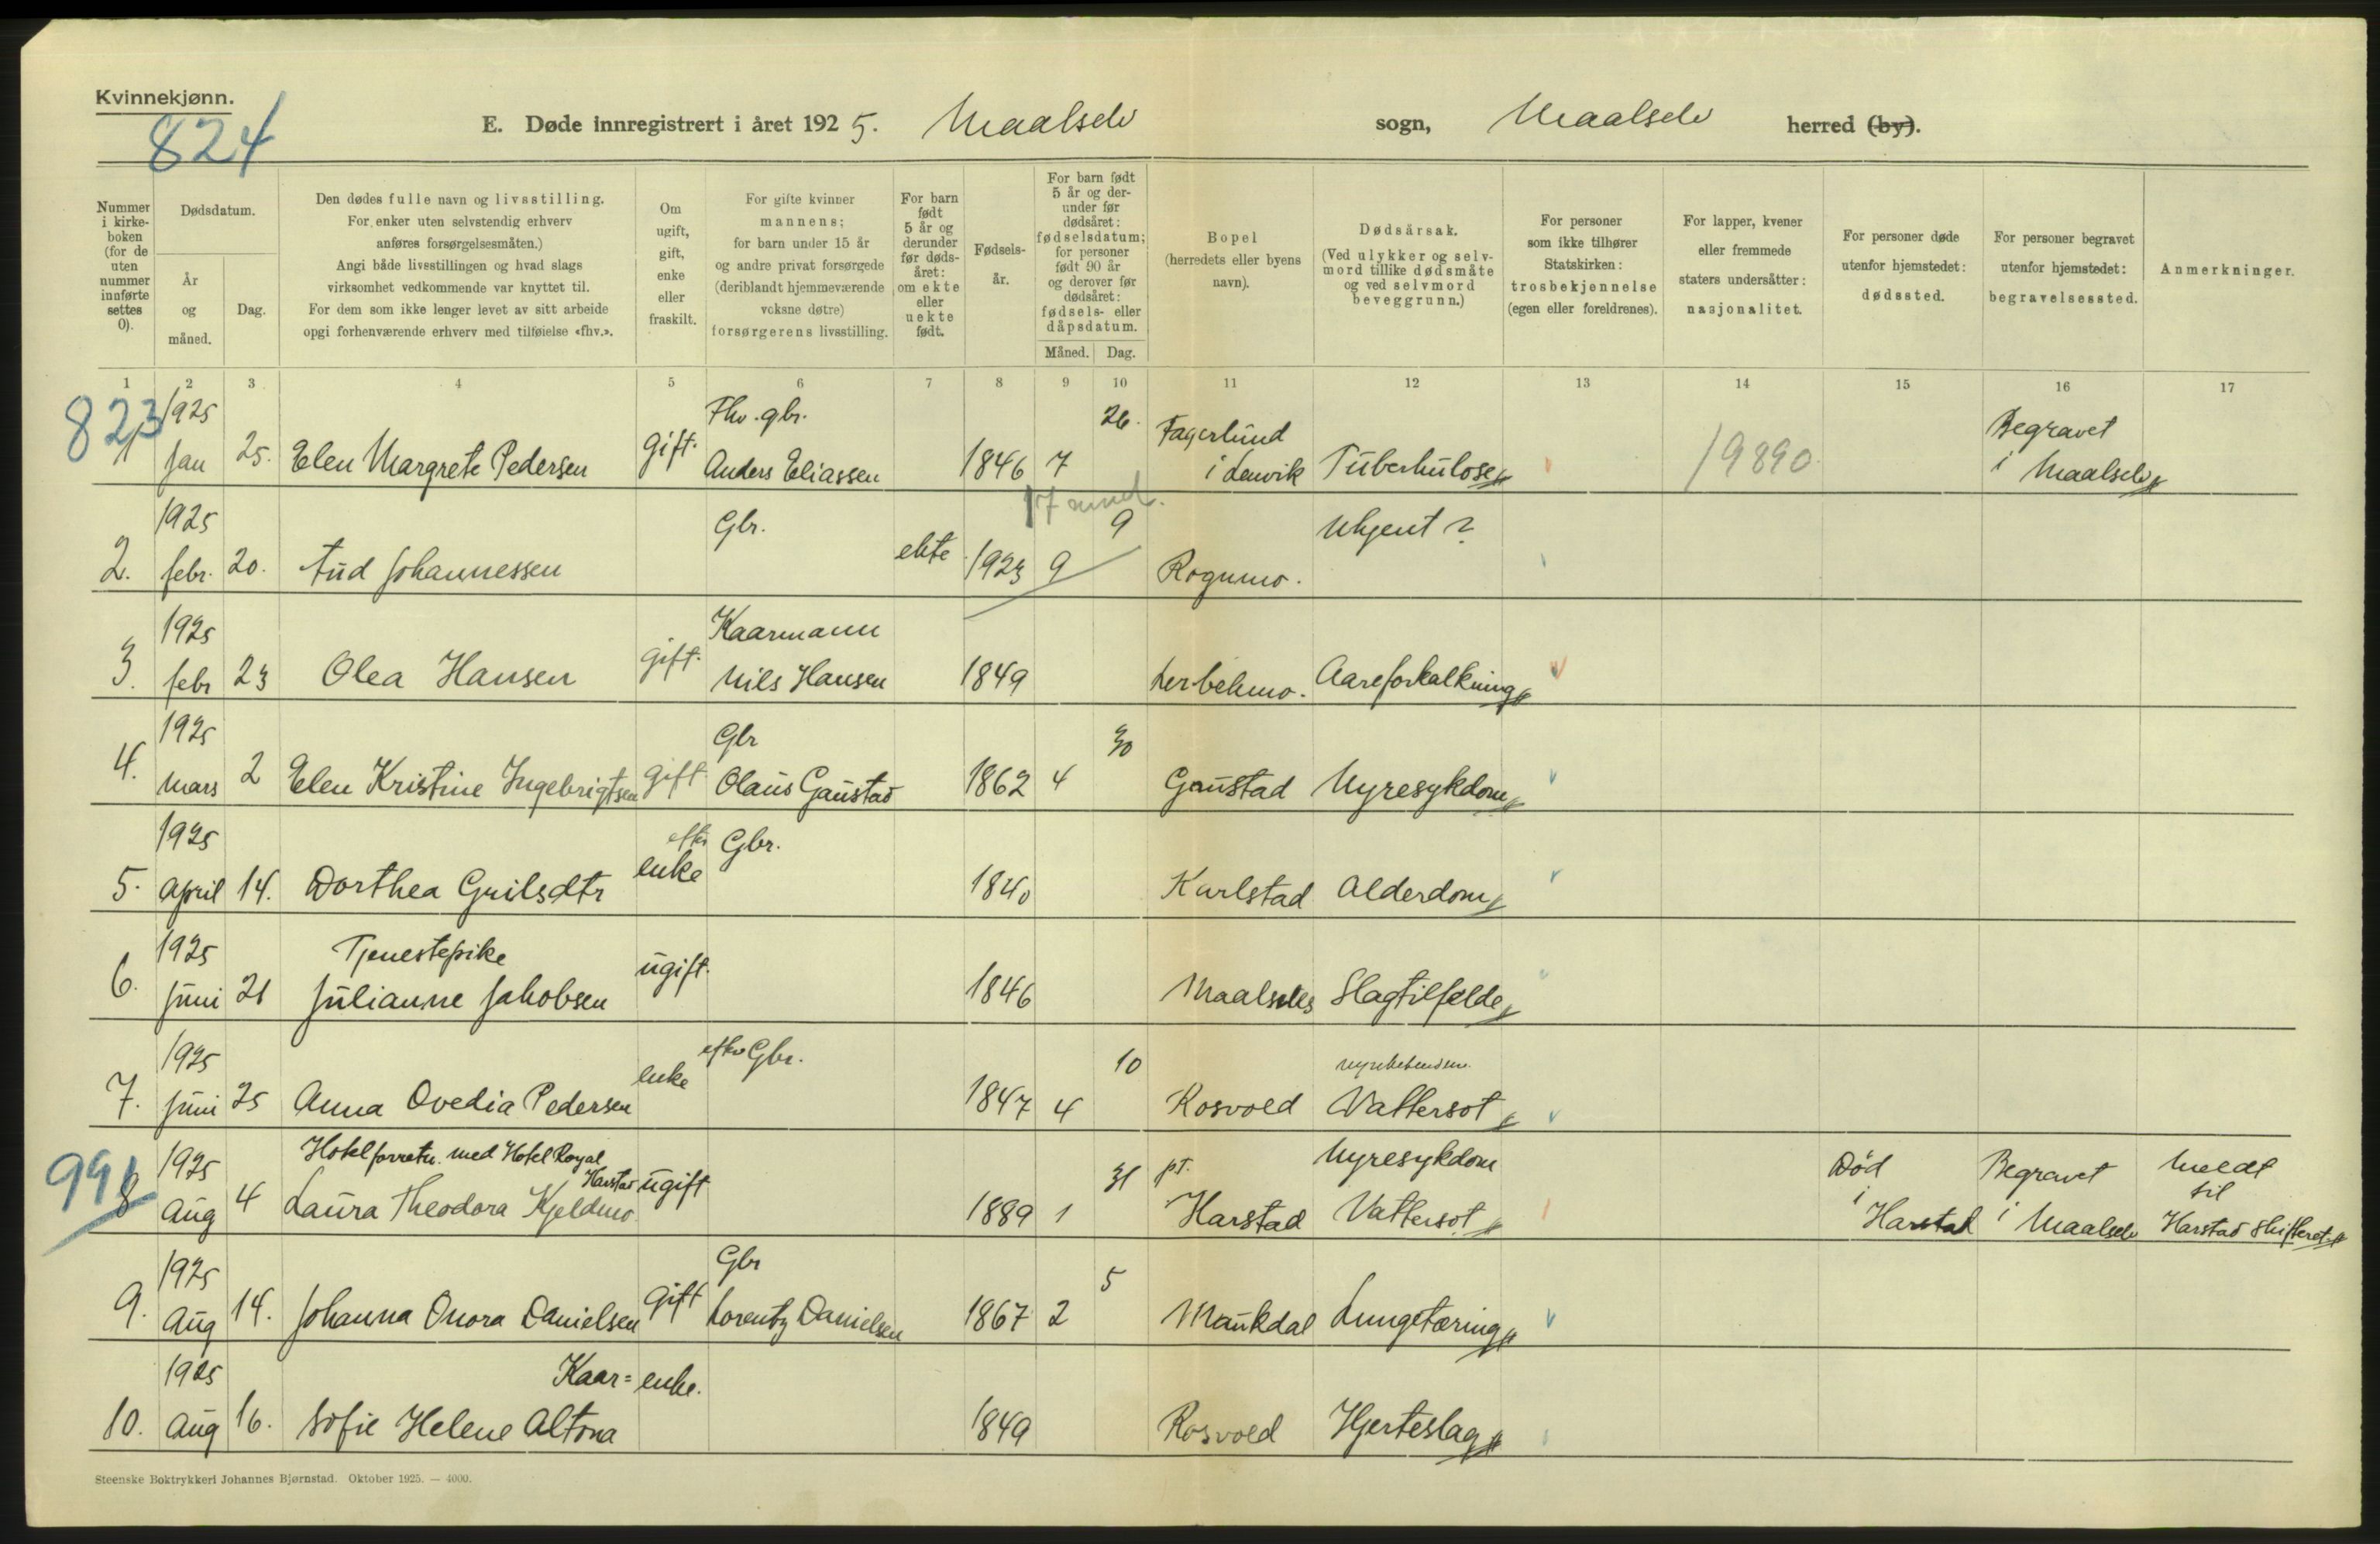 Kvinnekjønn.
824
E. Døde innregistrert i året 1925. Maalselv sogn, Maalselv herred (by).
Nummer i kirkeboken (for de uten nummer innførte settes 0).
Dødsdatum.
År og måned.
Dag.
Den dødes fulle navn og livsstilling.
For enker uten selvstendig erhverv
anføres forsørgelsesmåten.)
Angi både livsstillingen og hvad slags
virksomhet vedkommende var knyttet til.
For dem som ikke lenger levet av sitt arbeide
opgi forhenværende erhverv med tilføielse «fhv.».
Om ugift, gift, enke eller fraskilt.
For gifte kvinner
mannens;
for barn under 15 år
og andre privat forsørgede
(deriblandt hjemmeværende
voksne døtre)
forsørgerens livsstilling.
For barn født 5 år og derunder før dødsåret: om ekte eller uekte født.
Fødselsår.
For barn født 5 år og derunder før dødsåret: fødselsdatum; for personer født 90 år og derover før dødsåret: fødsels- eller dåpsdatum.
Måned. Dag.
Bopel
(herredets eller byens
navn).
Dødsårsak.
(Ved ulykker og selvmord tillike dødsmåte og ved selvmord beveggrunn.)
For personer
som ikke tilhører
Statskirken:
trosbekjennelse
(egen eller foreldrenes).
For lapper, kvener
eller fremmede
staters undersåtter:
nasjonalitet.
For personer døde
utenfor hjemstedet:
dødssted.
For personer begravet
utenfor hjemstedet:
begravelsessted.
Anmerkninger.
1 2 3 4 5 6 7 8 9 10 11 12 13 14 15 16 17
823
1925 Fhv. gbr. 26. Fagerlund Begravet
1 Jan 25. Elen Margrete Pedersen gift. Anders Eliassen 1846 7 i Lenvik Tuberkulose 19890 i Maalselv
17 mnd.
1925 Gbr. 9 Ukjent?
2. febr. 20. Aud Johannessen ekte 1923 9 Rognmo.
1925 Kaarmann
3. febr 23 Olea Hansen gift. Nils Hansen 1849 Aareforkalkning
1925 Gbr 30
4. Mars 2 Elen Kristine Ingebrigtsen gift Olaus Gaustad 1862 4 Gaustad Nyresykdom
1925 efter Gbr.
5. April 14. Dorthea enke 1840 Karlstad Alderdom
1925 Tjenestepike
6. Juni 21 Julianne Jakobsen ugift. 1846 Slagtilfelde
1925 efter Gbr. 10
7. Juni 25 Anna Ovedia Pedersen enke 1847 4 Rosvold Vattersot
991
1925 Hotelforretn. med Hotel Royal Harstad 31 pt. Nyresykdom Død Begravet Meldt til
8 Aug 4 Laura Theodora Kjeldmo ugift 1889 1 Harstad Vattersot i Harstad i Maalselv Harstad Skifteret.
1925 Gbr 5
9. Aug 14. Johanna Onora Danielsen gift Lorentz Danielsen 1867 2 Maukdal Lungetæring
1925 Kaar= enke.
10. Aug 16. Sofie Helene Altona 1849 Rosvold Hjerteslag
Steenske Boktrykkeri Johannes Bjørnstad. Oktober 1925. — 4000.